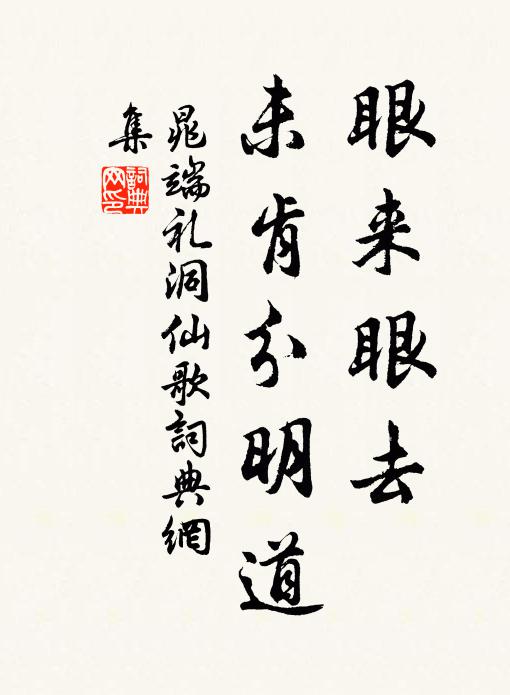 眼来眼去
未肯分明道
晁端礼洞仙歌詞典網
集
詞典
网印